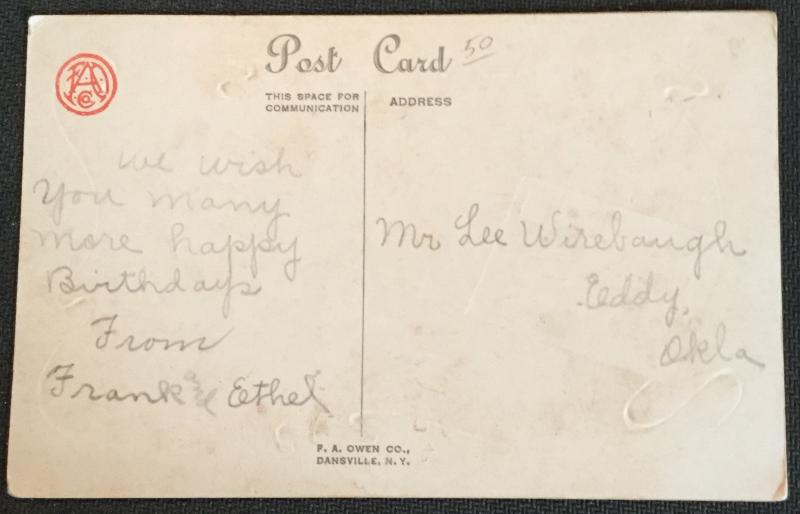 Post Card
50
THIS SPACE FOR
COMMUNICATION
ADDRESS
we wish
You many
more happy
Birthdays
From
Frank and Ethel
Mr Lee Wirebaugh
Eddy,
Okla
F. A. OWEN CO.,
DANSVILLE, N. Y.